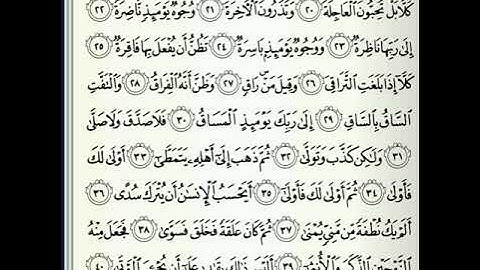 كَلَّا بَلْ تُحِبُّونَ ٱلْعَاجِلَةَ ٢٠ وَتَذَرُونَ ٱلْـَٔاخِرَةَ ٢١ وُجُوهٌ يَوْمَئِذٍ نَّاضِرَةٌ ٢٢
إِلَىٰ رَبِّهَا نَاظِرَةٌ ٢٣ وَوُجُوهٌ يَوْمَئِذٍۭ بَاسِرَةٌ ٢٤ تَظُنُّ أَن يُفْعَلَ بِهَا فَاقِرَةٌ ٢٥
كَلَّآ إِذَا بَلَغَتِ ٱلتَّرَاقِىَ ٢٦ وَقِيلَ مَنْ رَاقٍ ٢٧ وَظَنَّ أَنَّهُ ٱلْفِرَاقُ ٢٨ وَٱلْتَفَّتِ
ٱلسَّاقُ بِٱلسَّاقِ ٢٩ إِلَىٰ رَبِّكَ يَوْمَئِذٍ ٱلْمَسَاقُ ٣٠ فَلَا صَدَّقَ وَلَا صَلَّىٰ
٣١ وَلَٰكِن كَذَّبَ وَتَوَلَّىٰ ٣٢ ثُمَّ ذَهَبَ إِلَىٰٓ أَهْلِهِۦ يَتَمَطَّىٰٓ ٣٣ أَوْلَىٰ لَكَ
فَأَوْلَىٰ ٣٤ ثُمَّ أَوْلَىٰ لَكَ فَأَوْلَىٰٓ ٣٥ أَيَحْسَبُ ٱلْإِنسَٰنُ أَن يُتْرَكَ سُدًى ٣٦
أَلَمْ يَكُ نُطْفَةً مِّن مَّنِىٍّ يُمْنَىٰ ٣٧ ثُمَّ كَانَ عَلَقَةً فَخَلَقَ فَسَوَّىٰ ٣٨ فَجَعَلَ مِنْهُ
ٱلزَّوْجَيْنِ ٱلذَّكَرَ وَٱلْأُنثَىٰٓ ٣٩ أَلَيْسَ ذَٰلِكَ بِقَٰدِرٍ عَلَىٰٓ أَن يُحْـِۧىَ ٱلْمَوْتَىٰ ٤٠